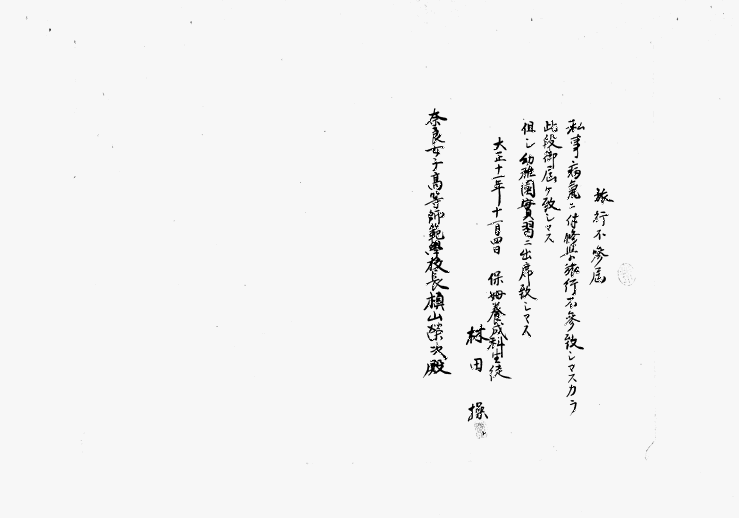 旅行不參届
私事病氣ニ付修學旅行不參致シマスカラ
此段御届ケ致シマス
但シ幼稚園實習ニ出席致シマス
大正十一年十一月四日 保姆養成科生徒
林田 操
奈良女子高等師範學校長槙山榮次殿